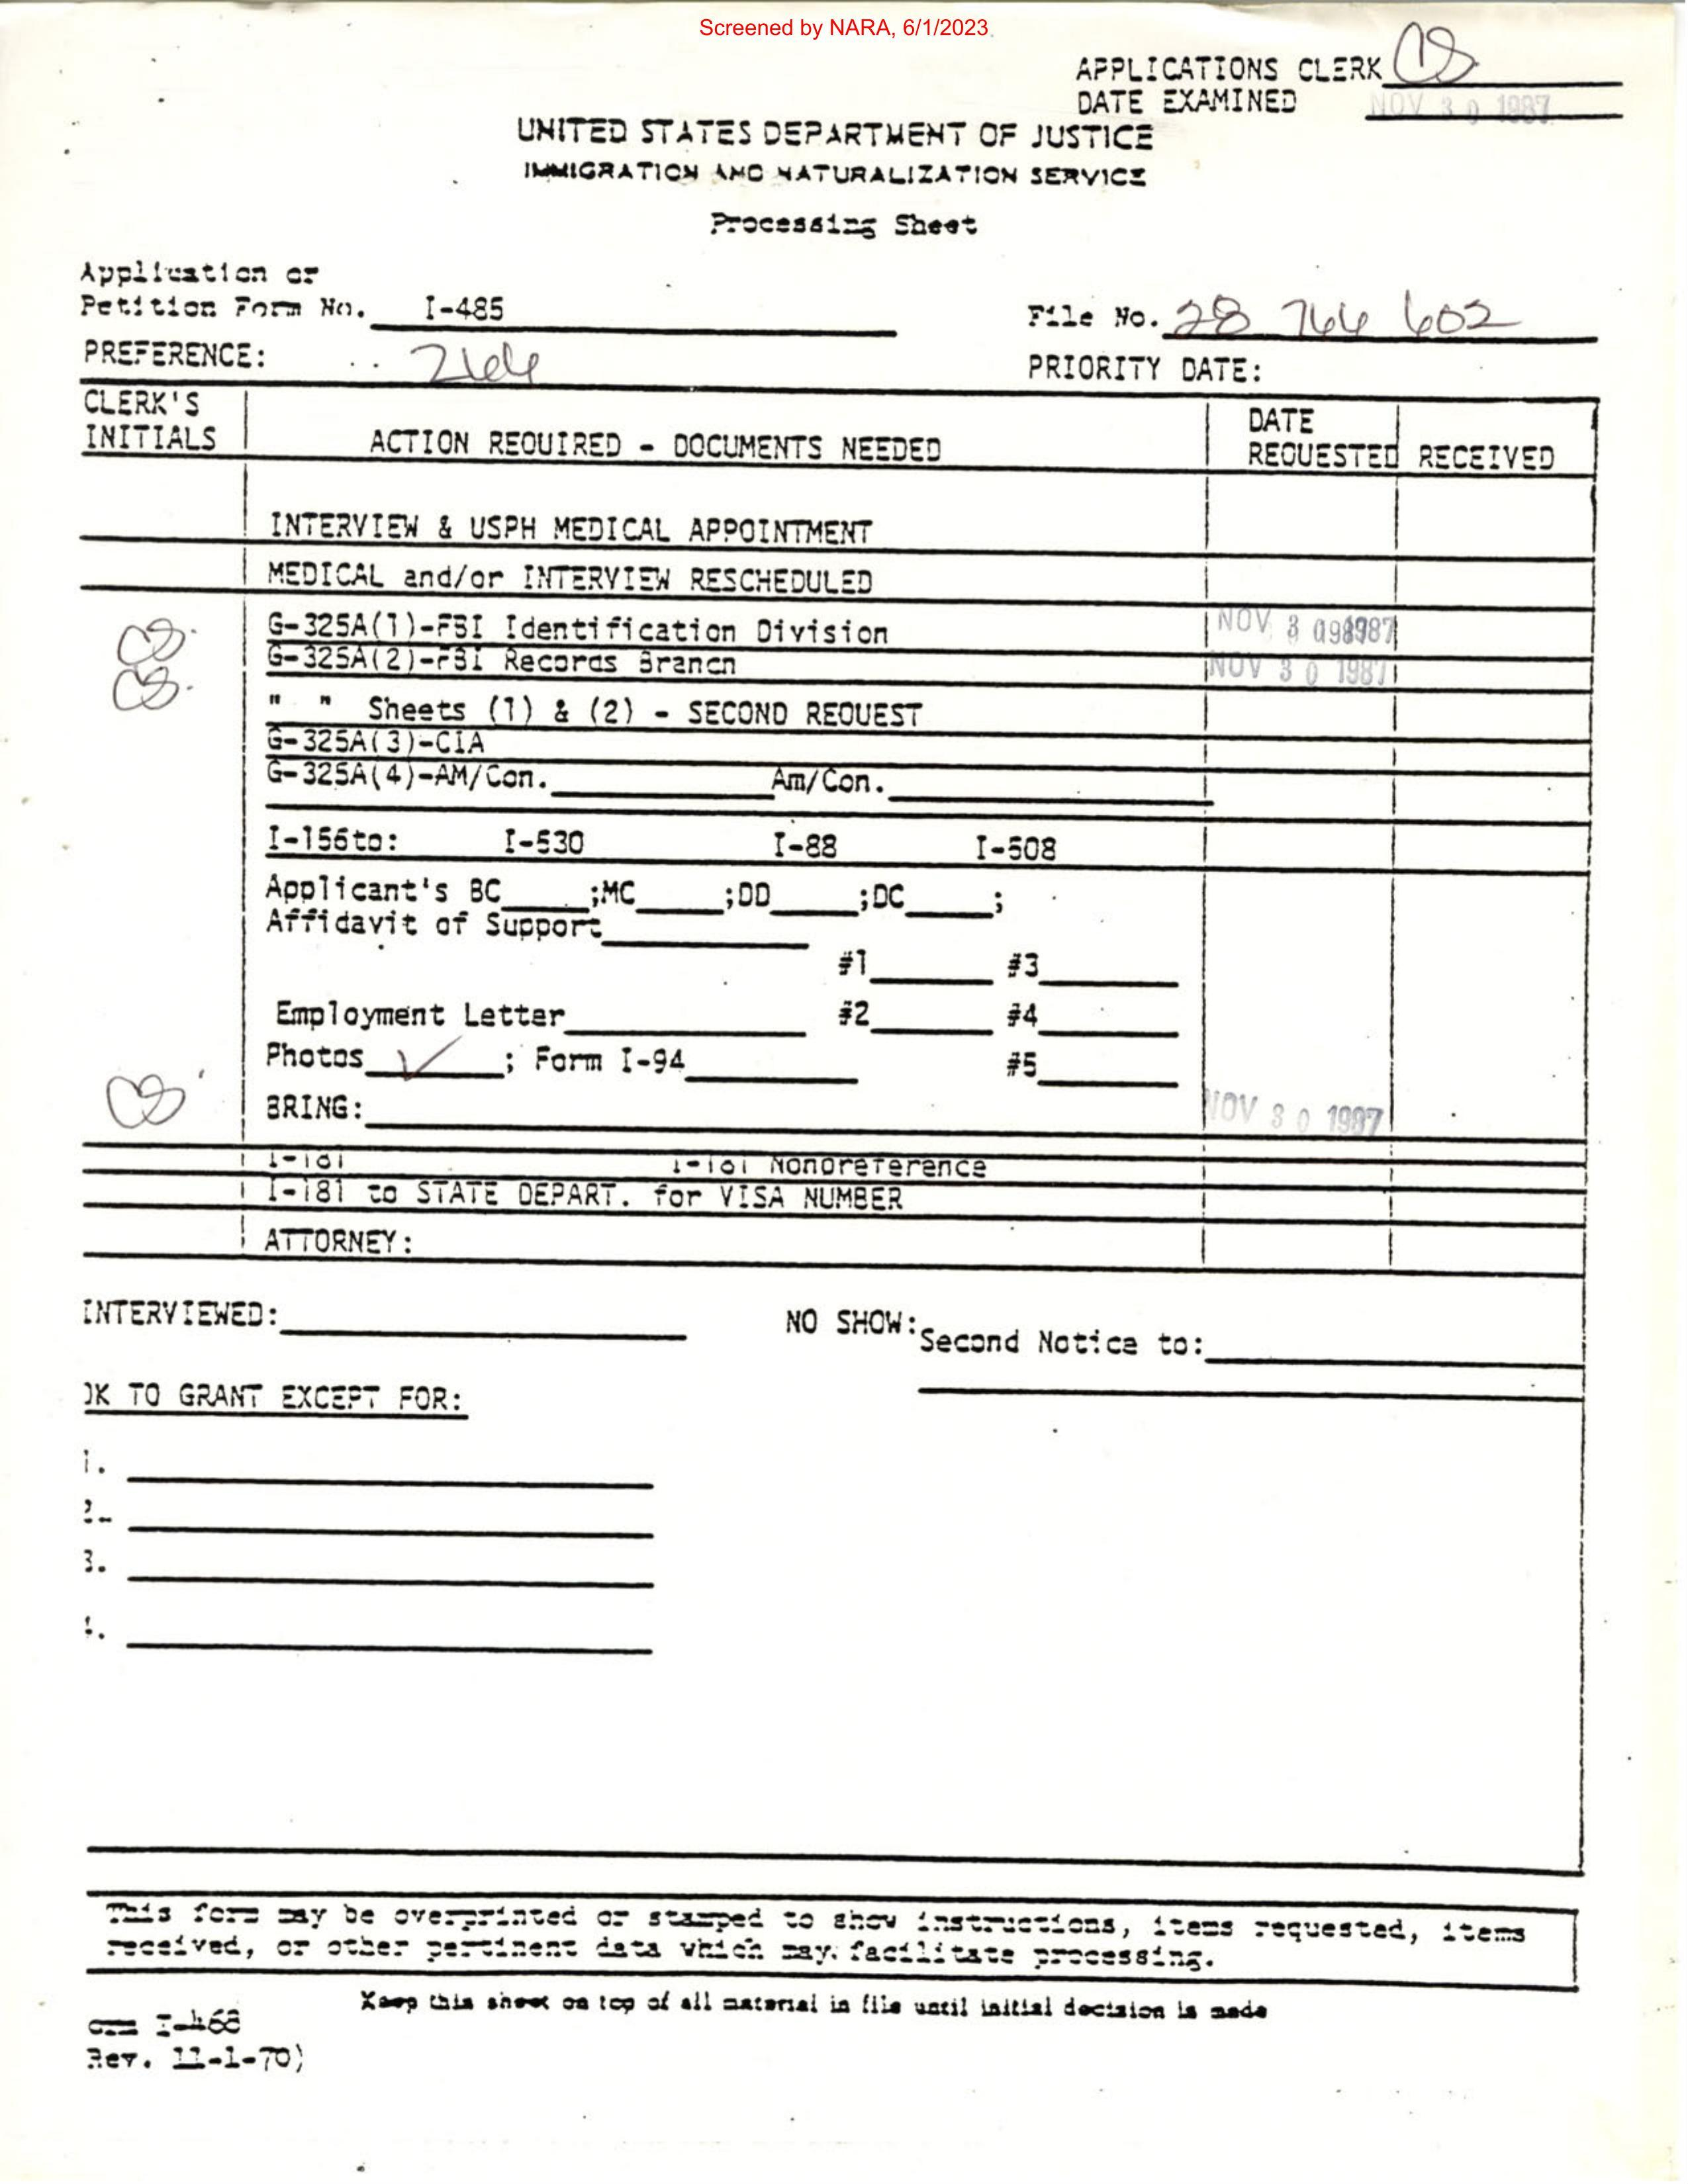 Screened by NARA, 6/1/2023
APPLICATIONS CLERK CS
DATE EXAMINED NOV 30 1987
UNITED STATES DEPARTMENT OF JUSTICE
IMMIGRATION AND NATURALIZATION SERVICE
Processing Sheet
Application or
Petition Form No. I-485
File No. 28 744 602
PREFERENCE:
PRIORITY DATE:
CLERK'S INITIALS
ACTION REQUIRED - DOCUMENTS NEEDED
DATE REQUESTED
RECEIVED
INTERVIEW & USPH MEDICAL APPOINTMENT
MEDICAL and/or INTERVIEW RESCHEDULED
CS G-325A(1)-FBI Identification Division NOV 30 1987
CS G-325A(2)-FBI Records Branch NOV 30 1987
" " Sheets (1) & (2) - SECOND REQUEST
G-325A(3)-CIA
G-325A(4)-AM/Con. Am/Con.
I-156to: I-530 I-88 I-508
Applicant's BC ;MC ;DD ;DC ;
Affidavit of Support
#1 #3
Employment Letter #2 #4
Photos ✓; Form I-94 #5
CS BRING: NOV 30 1987
I-181 I-181 Nonpreference
I-181 to STATE DEPART. for VISA NUMBER
ATTORNEY:
INTERVIEWED: NO SHOW: Second Notice to:
OK TO GRANT EXCEPT FOR:
1.
2.
3.
4.
This form may be overprinted or stamped to show instructions, items requested, items
received, or other pertinent data which may facilitate processing.
Keep this sheet on top of all material in file until initial decision is made
orm I-468
Rev. 11-1-70)